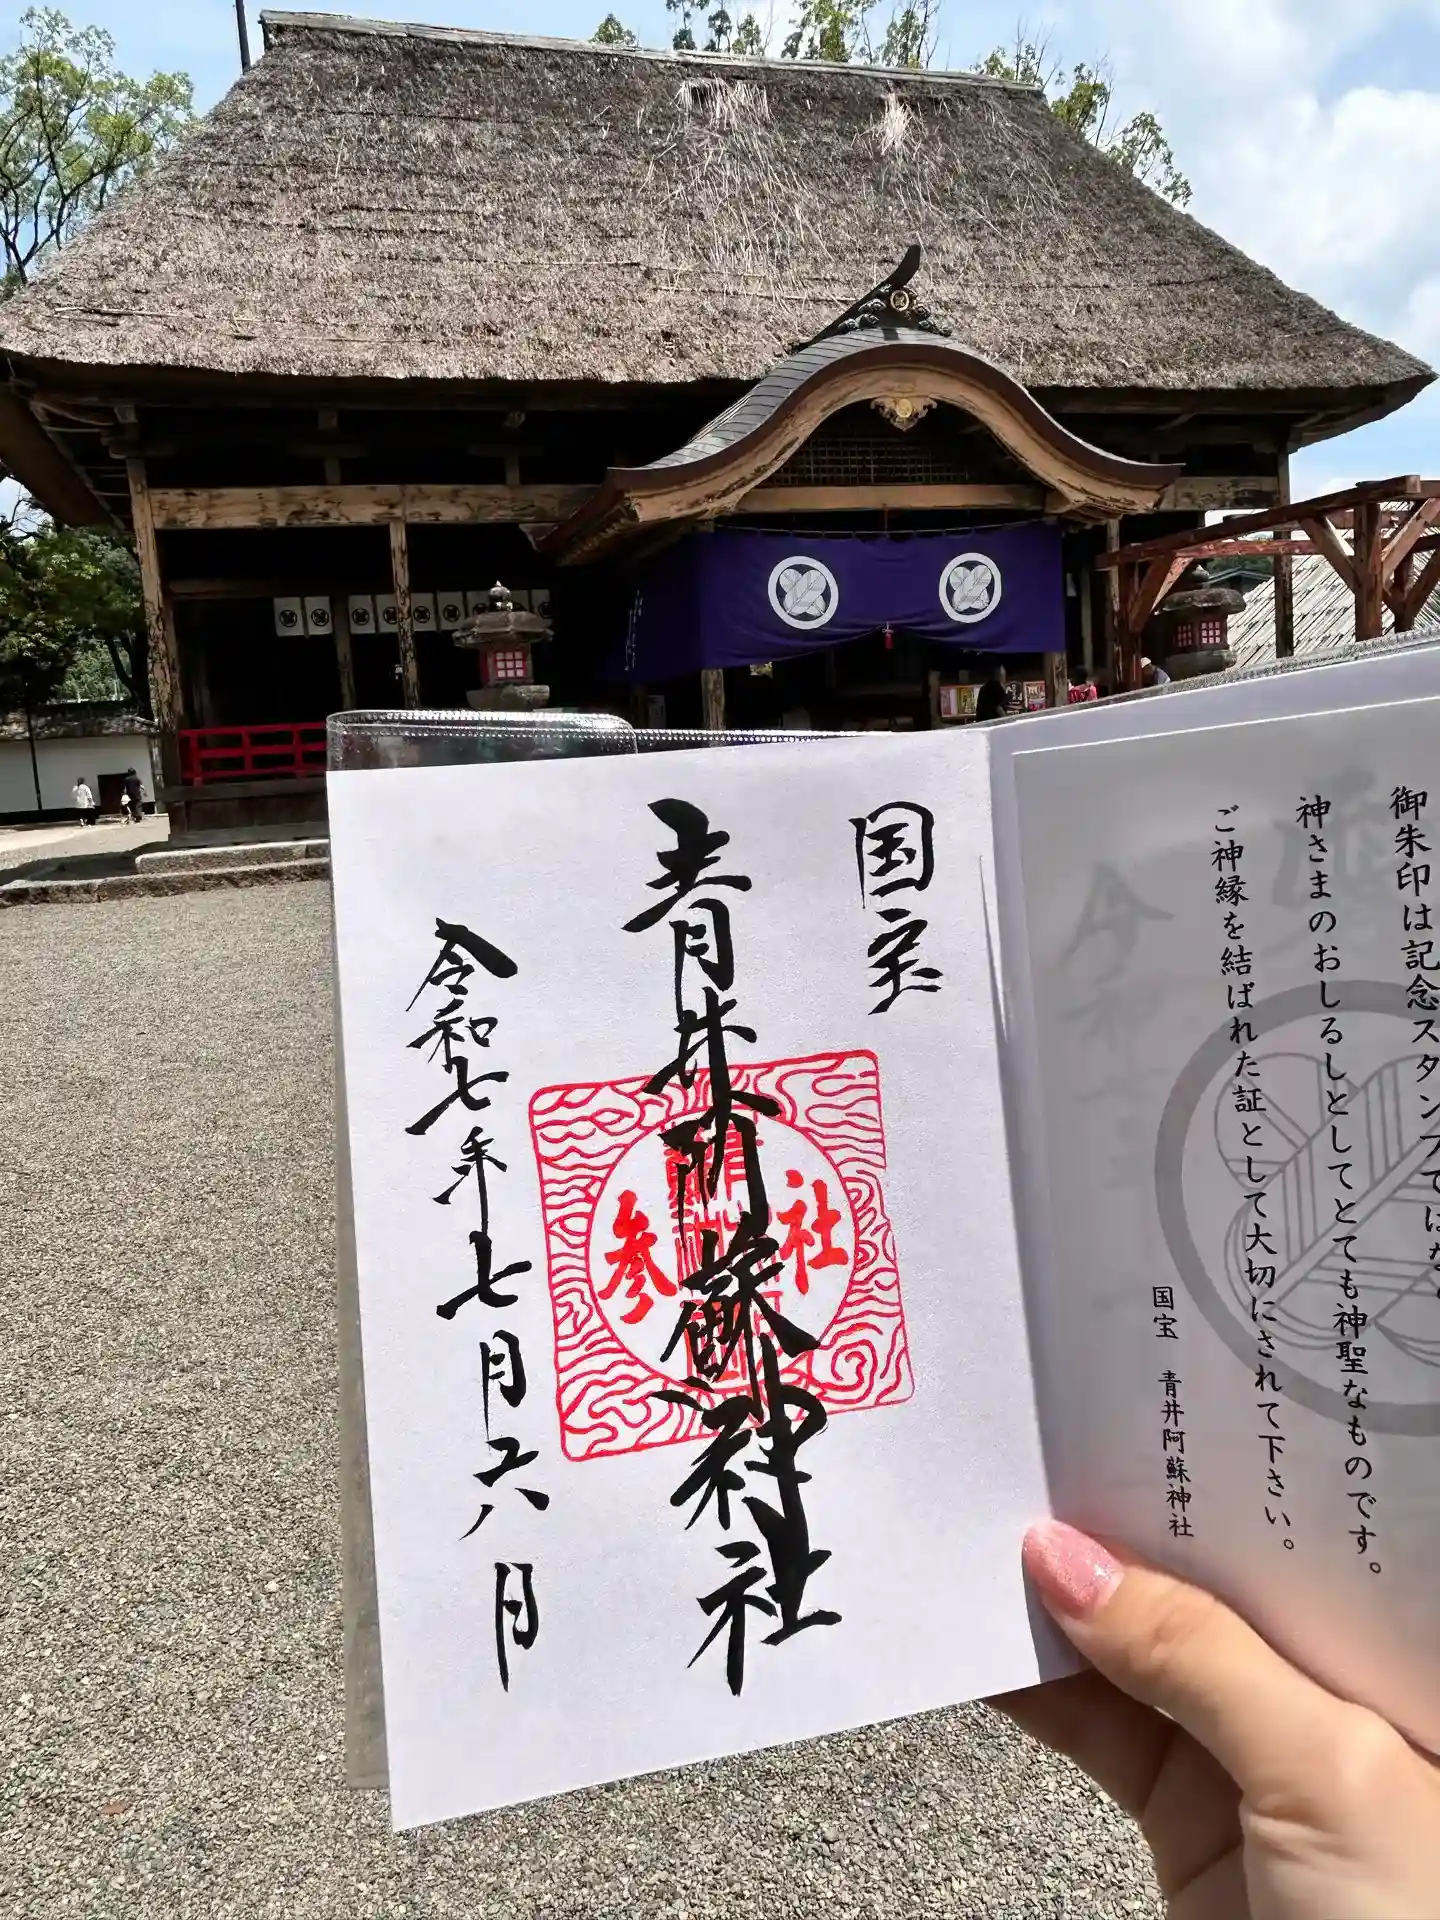 御朱印は記念スタンプではなく
神さまのおしるしとしてとても神聖なものです。
ご神縁を結ばれた証として大切にされて下さい。
国宝 青井阿蘇神社
国宝
青井阿蘇神社
社参
令和七年七月六日